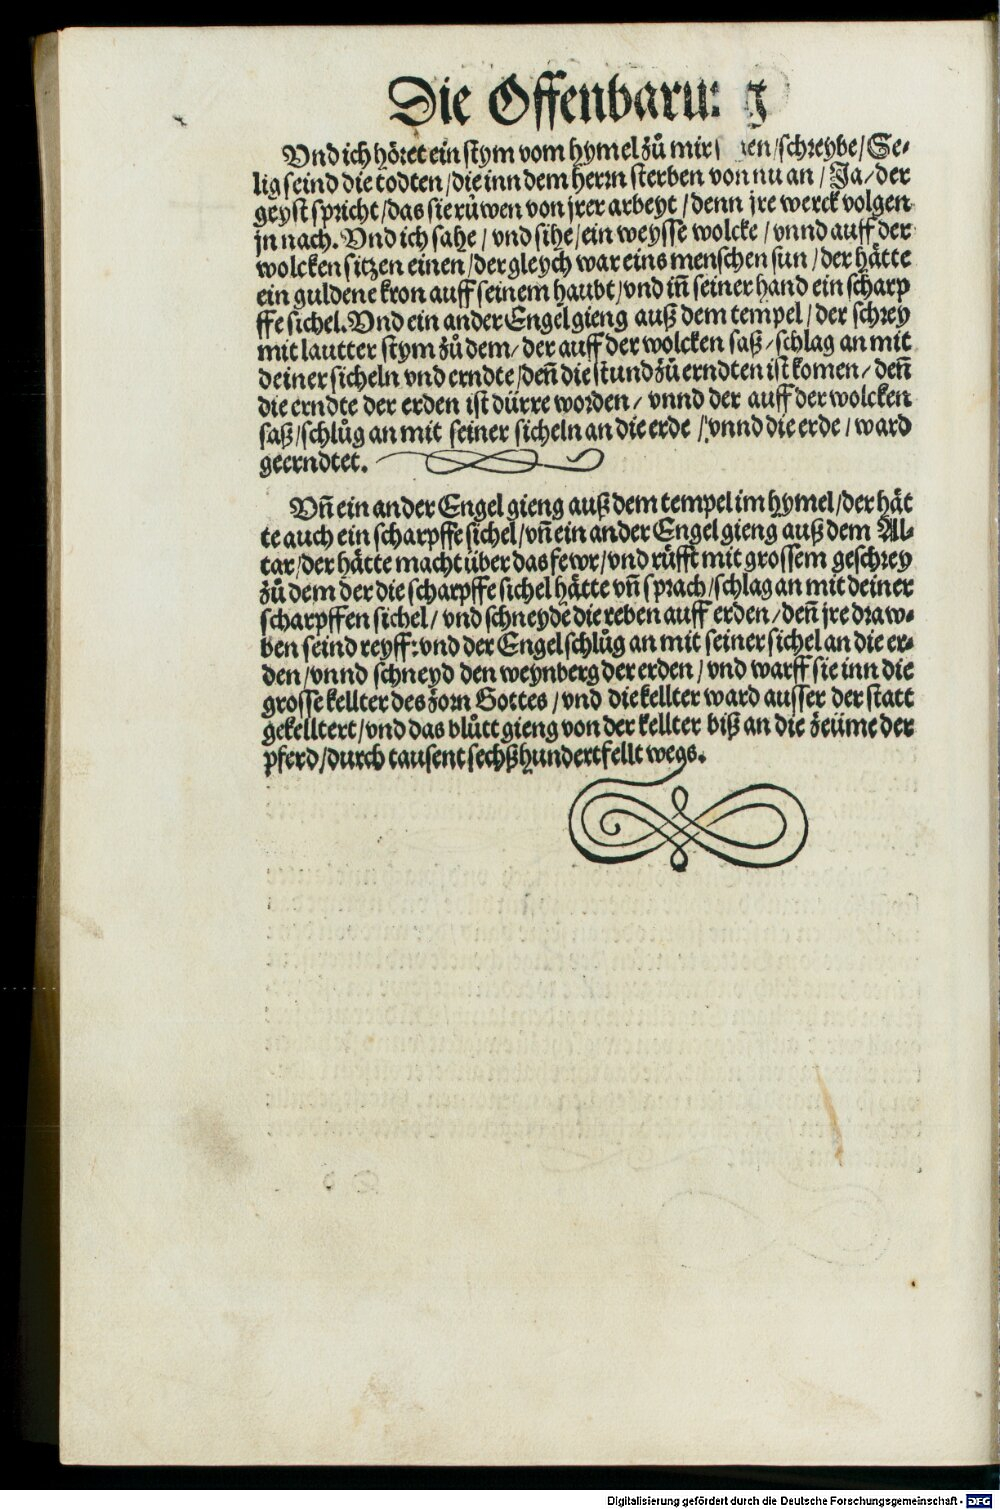 Die Offenbaru: g
Vnd ich höret ein stym vom hymel zů mir s en / schreybe / Se-
lig seind die todten / die inn dem herrn sterben von nu an / Ja / der
geyst spricht / das sie růwen von jrer arbeyt / denn jre werck volgen
jn nach. Vnd ich sahe / vnd sihe / ein weysse wolcke / vnnd auff der
wolcken sitzen einen / der gleych war eins menschen sun / der hätte
ein guldene kron auff seinem haubt / vnd iñ seiner hand ein scharp
ffe sichel. Vnd ein ander Engel gieng auß dem tempel / der schrey
mit lautter stym zů dem / der auff der wolcken saß / schlag an mit
deiner sicheln vnd erndte / deñ die stund zů erndten ist komen / deñ
die erndte der erden ist dürre worden / vnnd der auff der wolcken
saß / schlůg an mit seiner sicheln an die erde / vnnd die erde / ward
geerndtet.
Vñ ein ander Engel gieng auß dem tempel im hymel / der hät
te auch ein scharpffe sichel / vñ ein ander Engel gieng auß dem Al-
tar / der hätte macht über das fewr / vnd růfft mit grossem geschrey
zů dem der die scharpffe sichel hätte vñ sprach / schlag an mit deiner
scharpffen sichel / vnd schneyde die reben auff erden / deñ jre draw-
ben seind reyff: vnd der Engel schlůg an mit seiner sichel an die er-
den / vnnd schneyd den weynberg der erden / vnd warff sie inn die
grosse kellter des zorn Gottes / vnd die kellter ward ausser der statt
gekelltert / vnd das blůtt gieng von der kellter biß an die zeüme der
pferd / durch tausent sechßhundert fellt wegs.
Digitalisierung gefördert durch die Deutsche Forschungsgemeinschaft - DFG